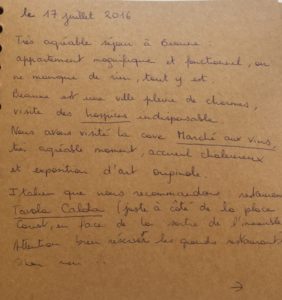 le 17 juillet 2016
Très agréable séjour à Beaune.
appartement magnifique et fonctionnel, on
ne manque de rien, tout y est.
Beaune est une ville pleine de charmes,
visite des hospices indispensable.
Nous avons visité la cave Marché aux vins,
très agréable moment, accueil chaleureux
et exposition d'art originale.
Italien que nous recommandons restaurant
Tavola Calda (juste à côté de la place
Carnot, en face de la sortie de l'immeuble
Attention bien réserver les grands restaurants
→